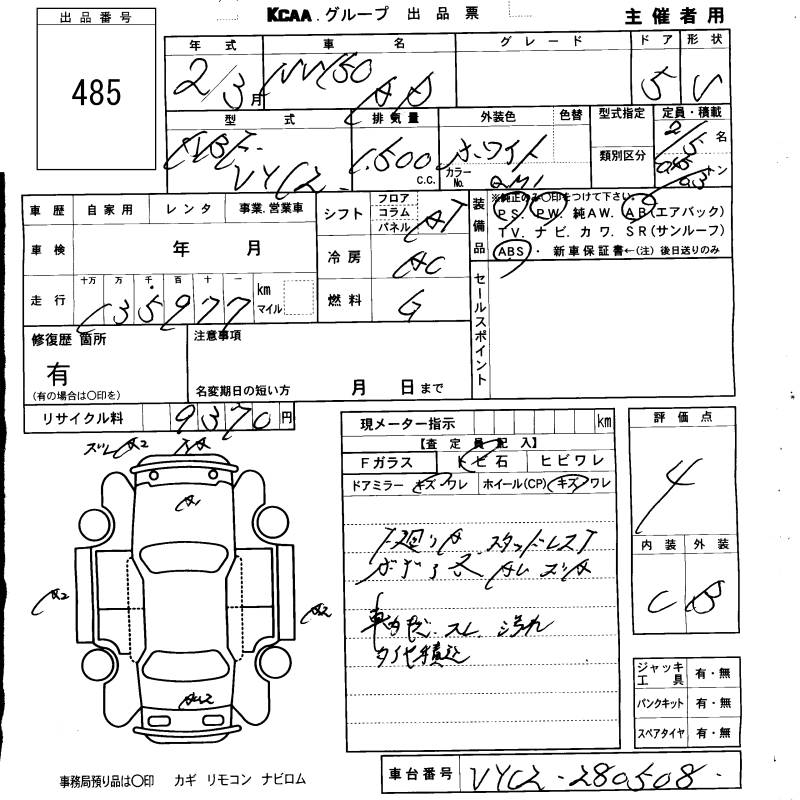 KCAA.グループ 出品票
主催者用
出品番号
485
年式 車名 グレード ドア 形状
2/3月 NV150 AD 5 V
型式 排気量 外装色 色替 型式指定 定員・積載
VY12 1,500 c.c. ホワイト 類別区分 2/5名
カラーNo. QM1 トン
車歴 自家用 レンタ 事業.営業車
シフト フロア コラム パネル AT
装備品 ※純正のみ〇印をつけて下さい。
PS. PW. 純AW. AB(エアバック)
TV. ナビ. カワ. SR(サンルーフ)
ABS ・ 新車保証書←(注) 後日送りのみ
車検 年 月
冷房 AC
走行 十万 万 千 百 十 一
135977 km マイル
燃料 G
セールスポイント
修復歴 箇所
有
(有の場合は〇印を)
注意事項
名変期日の短い方 月 日まで
リサイクル料 9370円
現メーター指示 km
【査定員記入】
Fガラス トビ石 ヒビワレ
ドアミラー キズ ワレ ホイール(CP) キズ ワレ
評価点
4
内装 外装
C B
A2
A1
A2
A2
下廻りA スタッドレスT
スレ 汚れ
タイヤ積込
ジャッキ 工具 有・無
パンクキット 有・無
スペアタイヤ 有・無
事務局預り品は〇印 カギ リモコン ナビロム
車台番号 VY12-280508